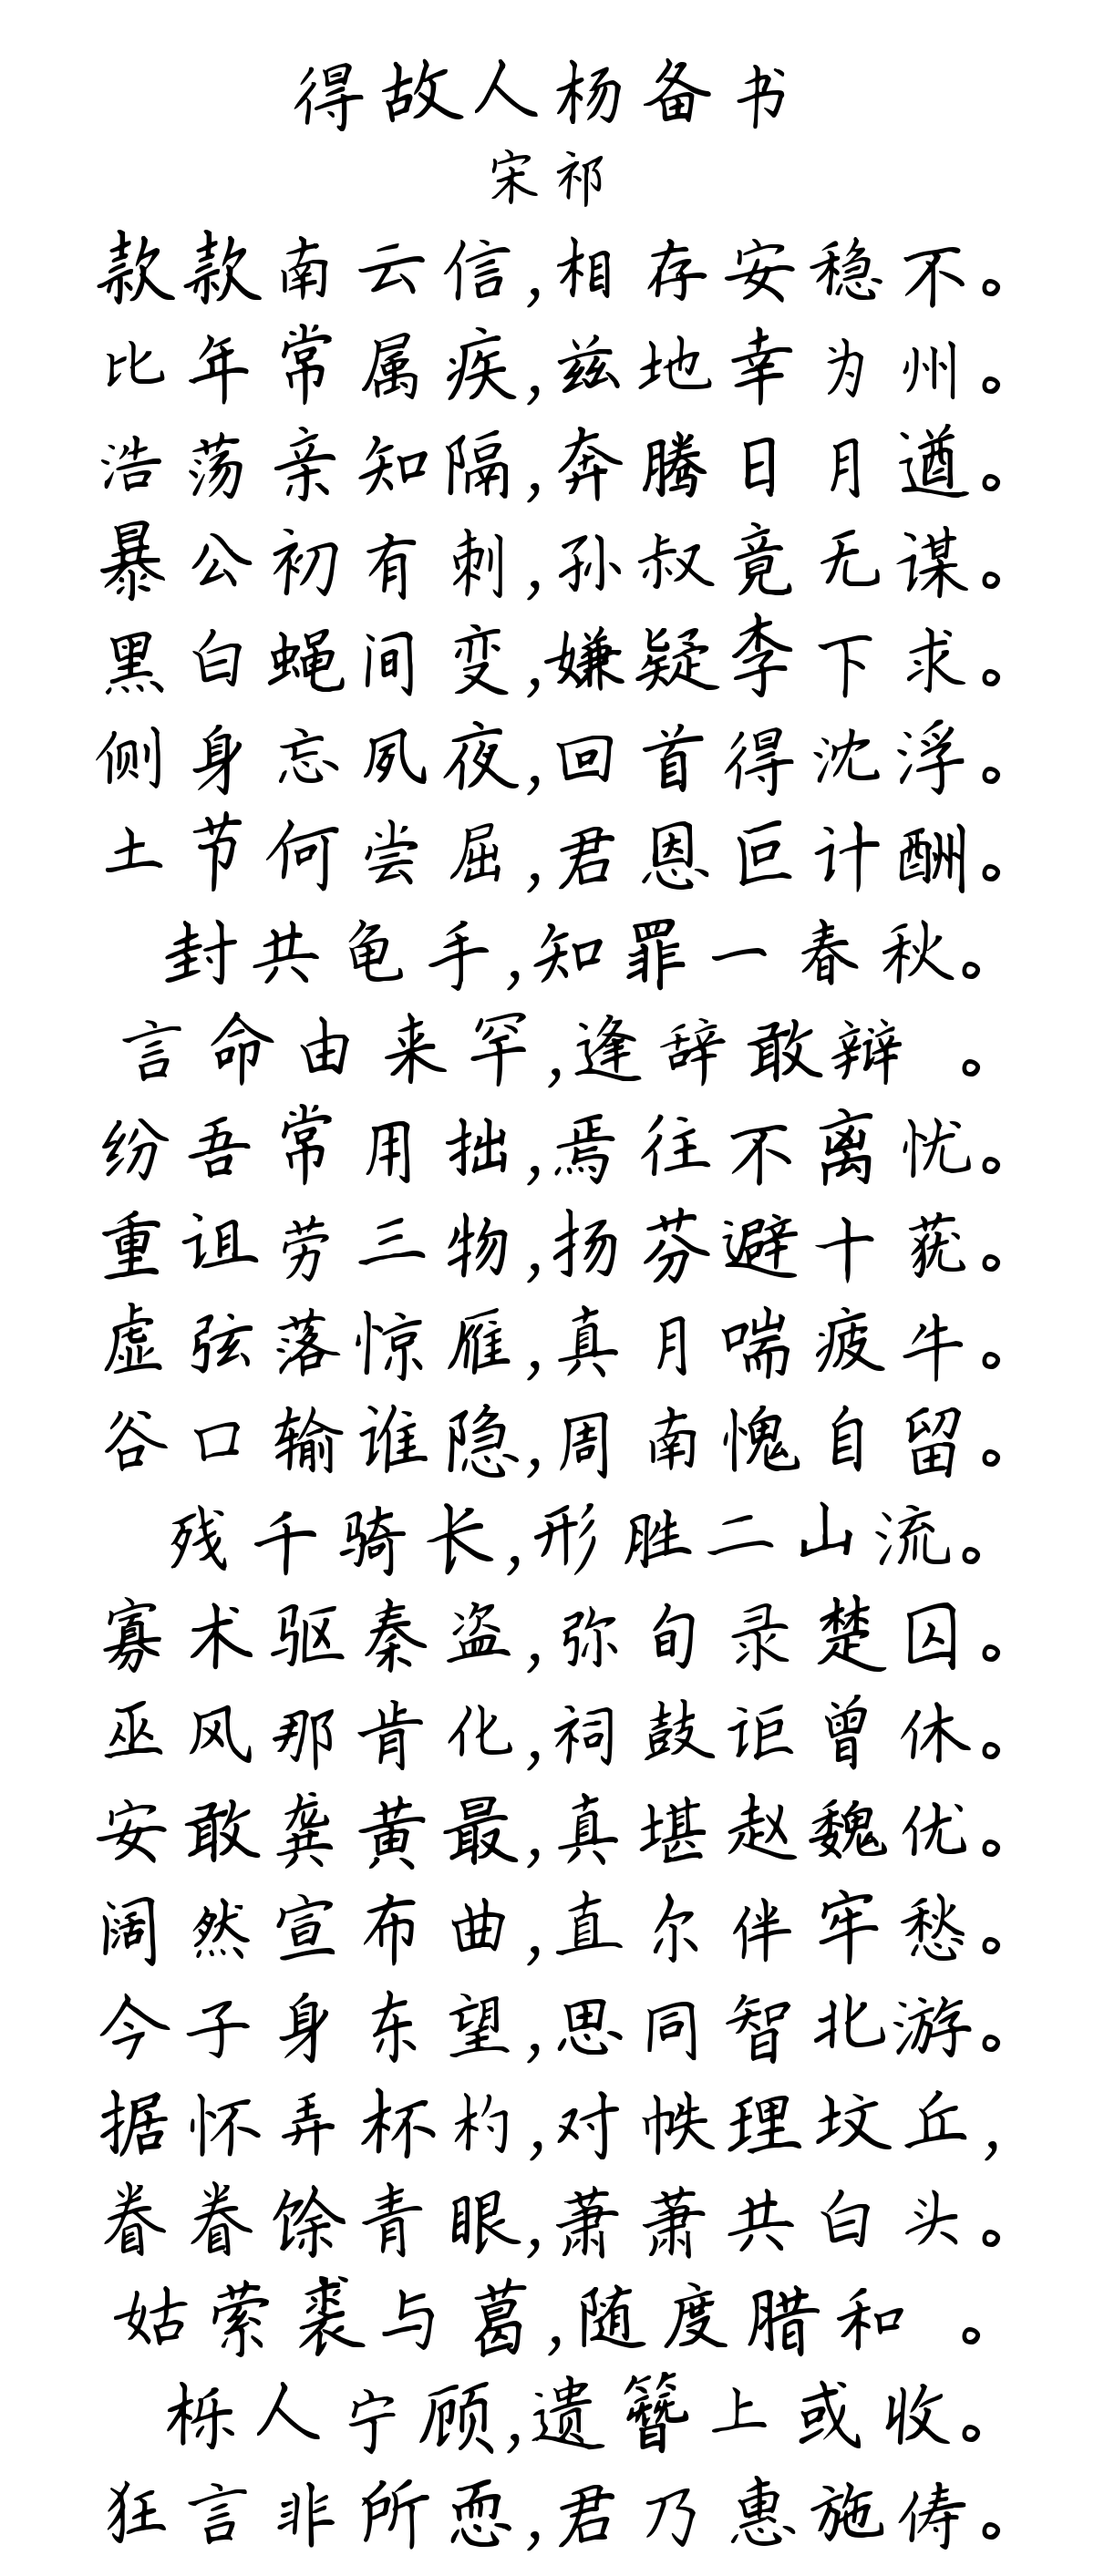 得故人杨备书
宋祁
款款南云信,相存安稳不。
比年常属疾,兹地幸为州。
浩荡亲知隔,奔腾日月遒。
暴公初有刺,孙叔竟无谋。
黑白蝇间变,嫌疑李下求。
侧身忘夙夜,回首得沈浮。
土节何尝屈,君恩叵计酬。
封共龟手,知罪一春秋。
言命由来罕,逢辞敢辩 。
纷吾常用拙,焉往不离忧。
重诅劳三物,扬芬避十莸。
虚弦落惊雁,真月喘疲牛。
谷口输谁隐,周南愧自留。
残千骑长,形胜二山流。
寡术驱秦盗,弥旬录楚囚。
巫风那肯化,祠鼓讵曾休。
安敢龚黄最,真堪赵魏优。
阔然宣布曲,直尔伴牢愁。
今子身东望,思同智北游。
据怀弄杯杓,对帙理坟丘,
眷眷馀青眼,萧萧共白头。
姑萦裘与葛,随度腊和 。
栎人宁顾,遗簪上或收。
狂言非所恧,君乃惠施俦。